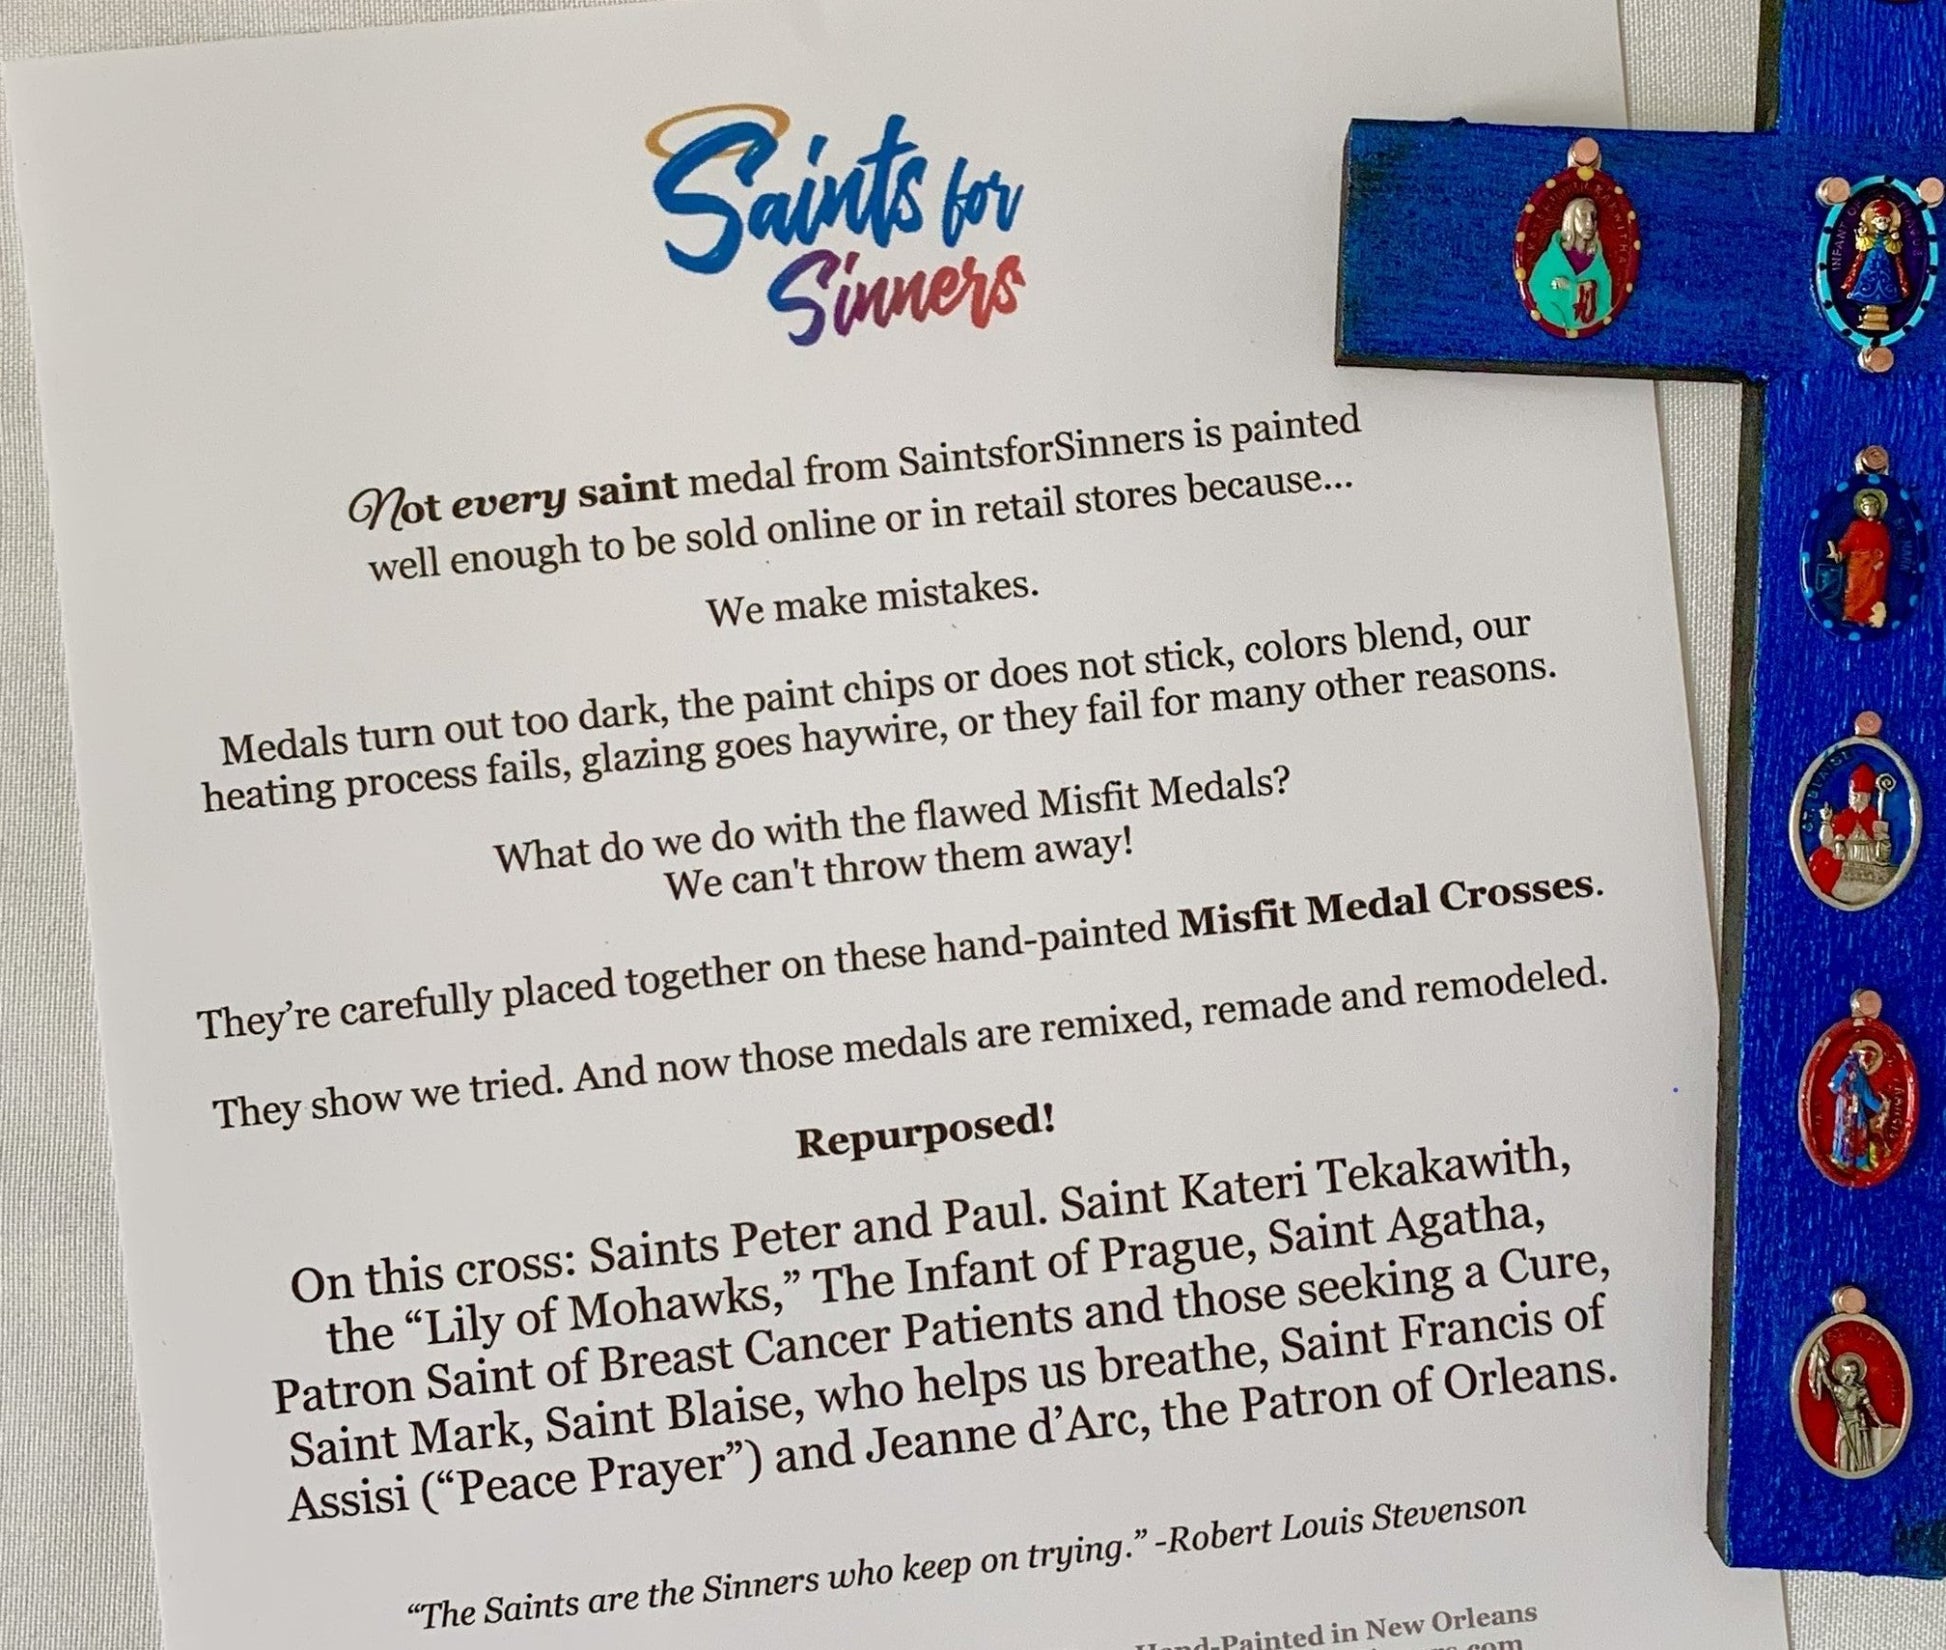 Saints for
Sinners
Not every saint medal from SaintsforSinners is painted
well enough to be sold online or in retail stores because...
We make mistakes.
Medals turn out too dark, the paint chips or does not stick, colors blend, our
heating process fails, glazing goes haywire, or they fail for many other reasons.
What do we do with the flawed Misfit Medals?
We can't throw them away!
They’re carefully placed together on these hand-painted Misfit Medal Crosses.
They show we tried. And now those medals are remixed, remade and remodeled.
Repurposed!
On this cross: Saints Peter and Paul. Saint Kateri Tekakawith,
the “Lily of Mohawks,” The Infant of Prague, Saint Agatha,
Patron Saint of Breast Cancer Patients and those seeking a Cure,
Saint Mark, Saint Blaise, who helps us breathe, Saint Francis of
Assisi (“Peace Prayer”) and Jeanne d’Arc, the Patron of Orleans.
“The Saints are the Sinners who keep on trying.” -Robert Louis Stevenson
Hand-Painted in New Orleans
.com
INFANT OF PRAGUE
ST. BLAISE